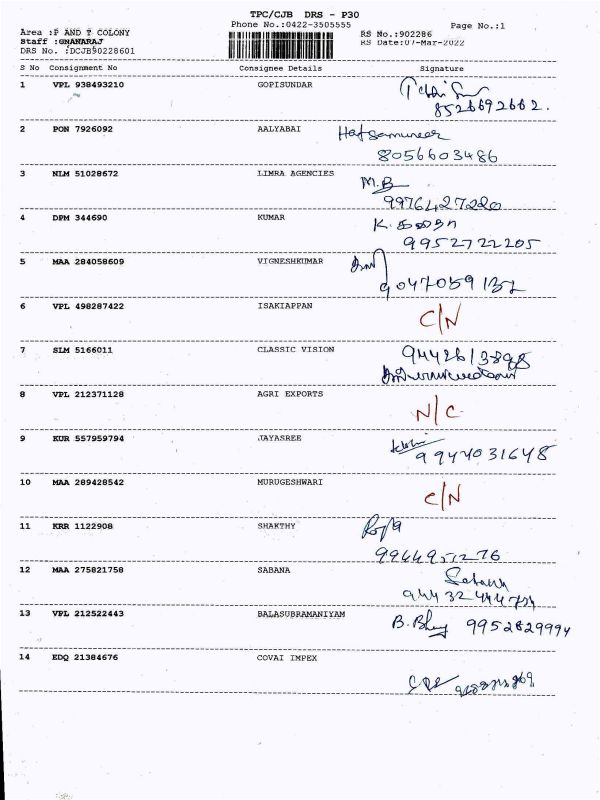 TPC/CJB DRS - P30
Phone No.:0422-3505555
Page No.:1
Area :P AND T COLONY
Staff :GNANARAJ
DRS No. :DCJB90228601
RS No.:902286
RS Date:07-Mar-2022
S No Consignment No Consignee Details Signature
1 VPL 938493210 GOPISUNDAR
8526692662.
2 PON 7926092 AALYABAI
8056603486
3 NLM 51028672 LIMRA AGENCIES M.B
9976427220
4 DPM 344690 KUMAR K.
9952722205
5 MAA 284058609 VIGNESHKUMAR
9047059132
6 VPL 498287422 ISAKIAPPAN C/N
7 SLM 5166011 CLASSIC VISION
8 VPL 212371128 AGRI EXPORTS N/C
9 KUR 557959794 JAYASREE
9944031648
10 MAA 289428542 MURUGESHWARI C/N
11 KRR 1122908 SHAKTHY
12 MAA 275821758 SABANA
13 VPL 212522443 BALASUBRAMANIYAM B. 9952829994
14 EDQ 21384676 COVAI IMPEX